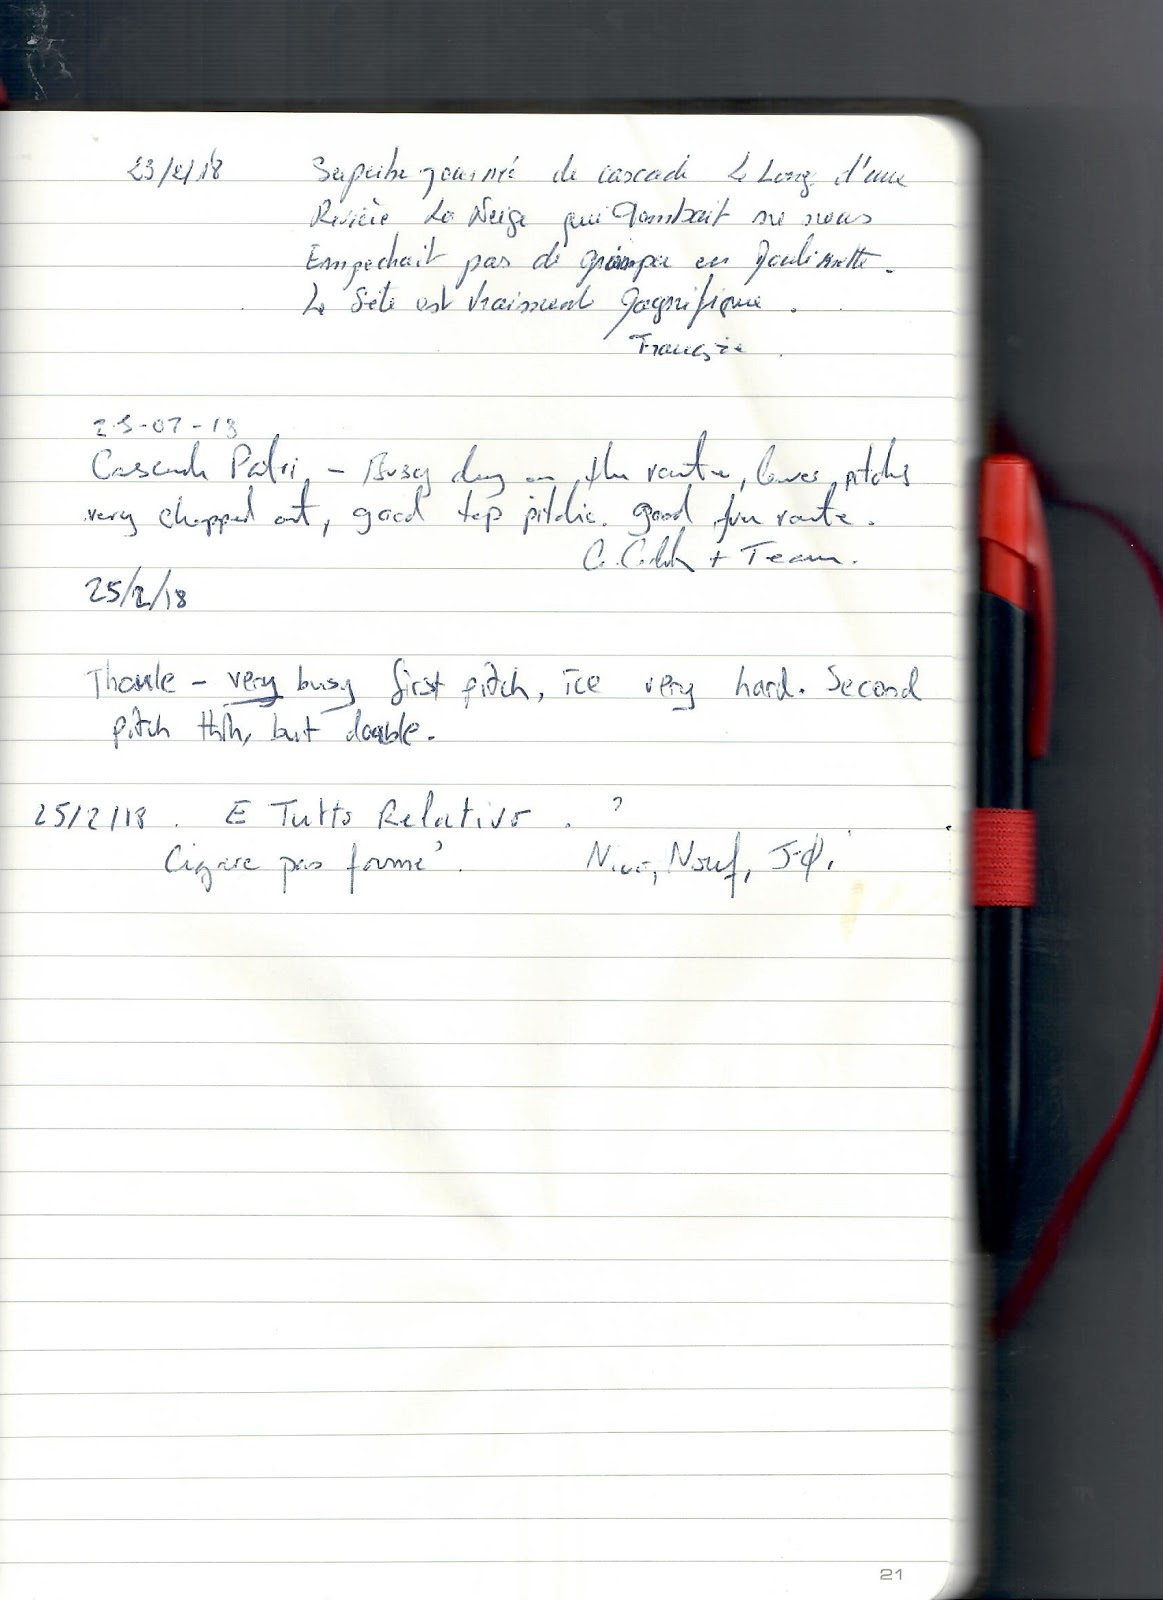 23/2/18 Superbe journée de cascade Le Long d'une
Rivière La Neige qui Tombait ne nous
Empechait pas de grimper en Moulinette.
Le Site est Vraiment Magnifique.
Françoise
25-02-18
Cascade Patri - Busy day on the route, lower pitches
very chopped out, good top pitch. good fun route.
+ Team.
25/2/18
Thoule - very busy first pitch, ice very hard. Second
pitch thin, but doable.
25/2/18. E Tutto Relativo. ?
Cigare pas formé. Nico, Nouf, J-Φ.
21